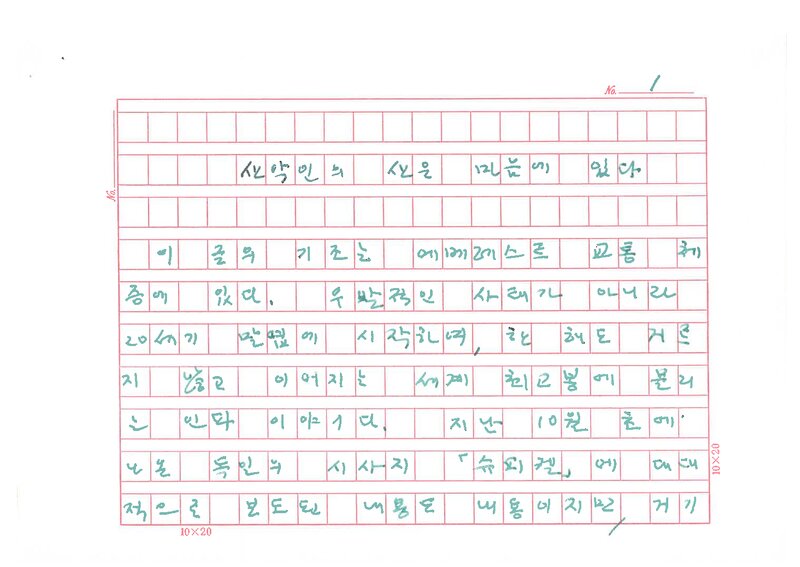 No. 1
산악인의 산은 마음에 있다.
이 글의 기조는 에베레스트 교통 체
증에 있다. 우발적인 사태가 아니라
20세기 말엽에 시작하여, 한 해도 거르
지 않고 이어지는 세계 최고봉에 몰리
는 인파 이야기다. 지난 10월 초에
나온 독일의 시사지 「슈피겔」에 대대
적으로 보도된 내용도 내용이지만, 거기
No.
10×20
10×20